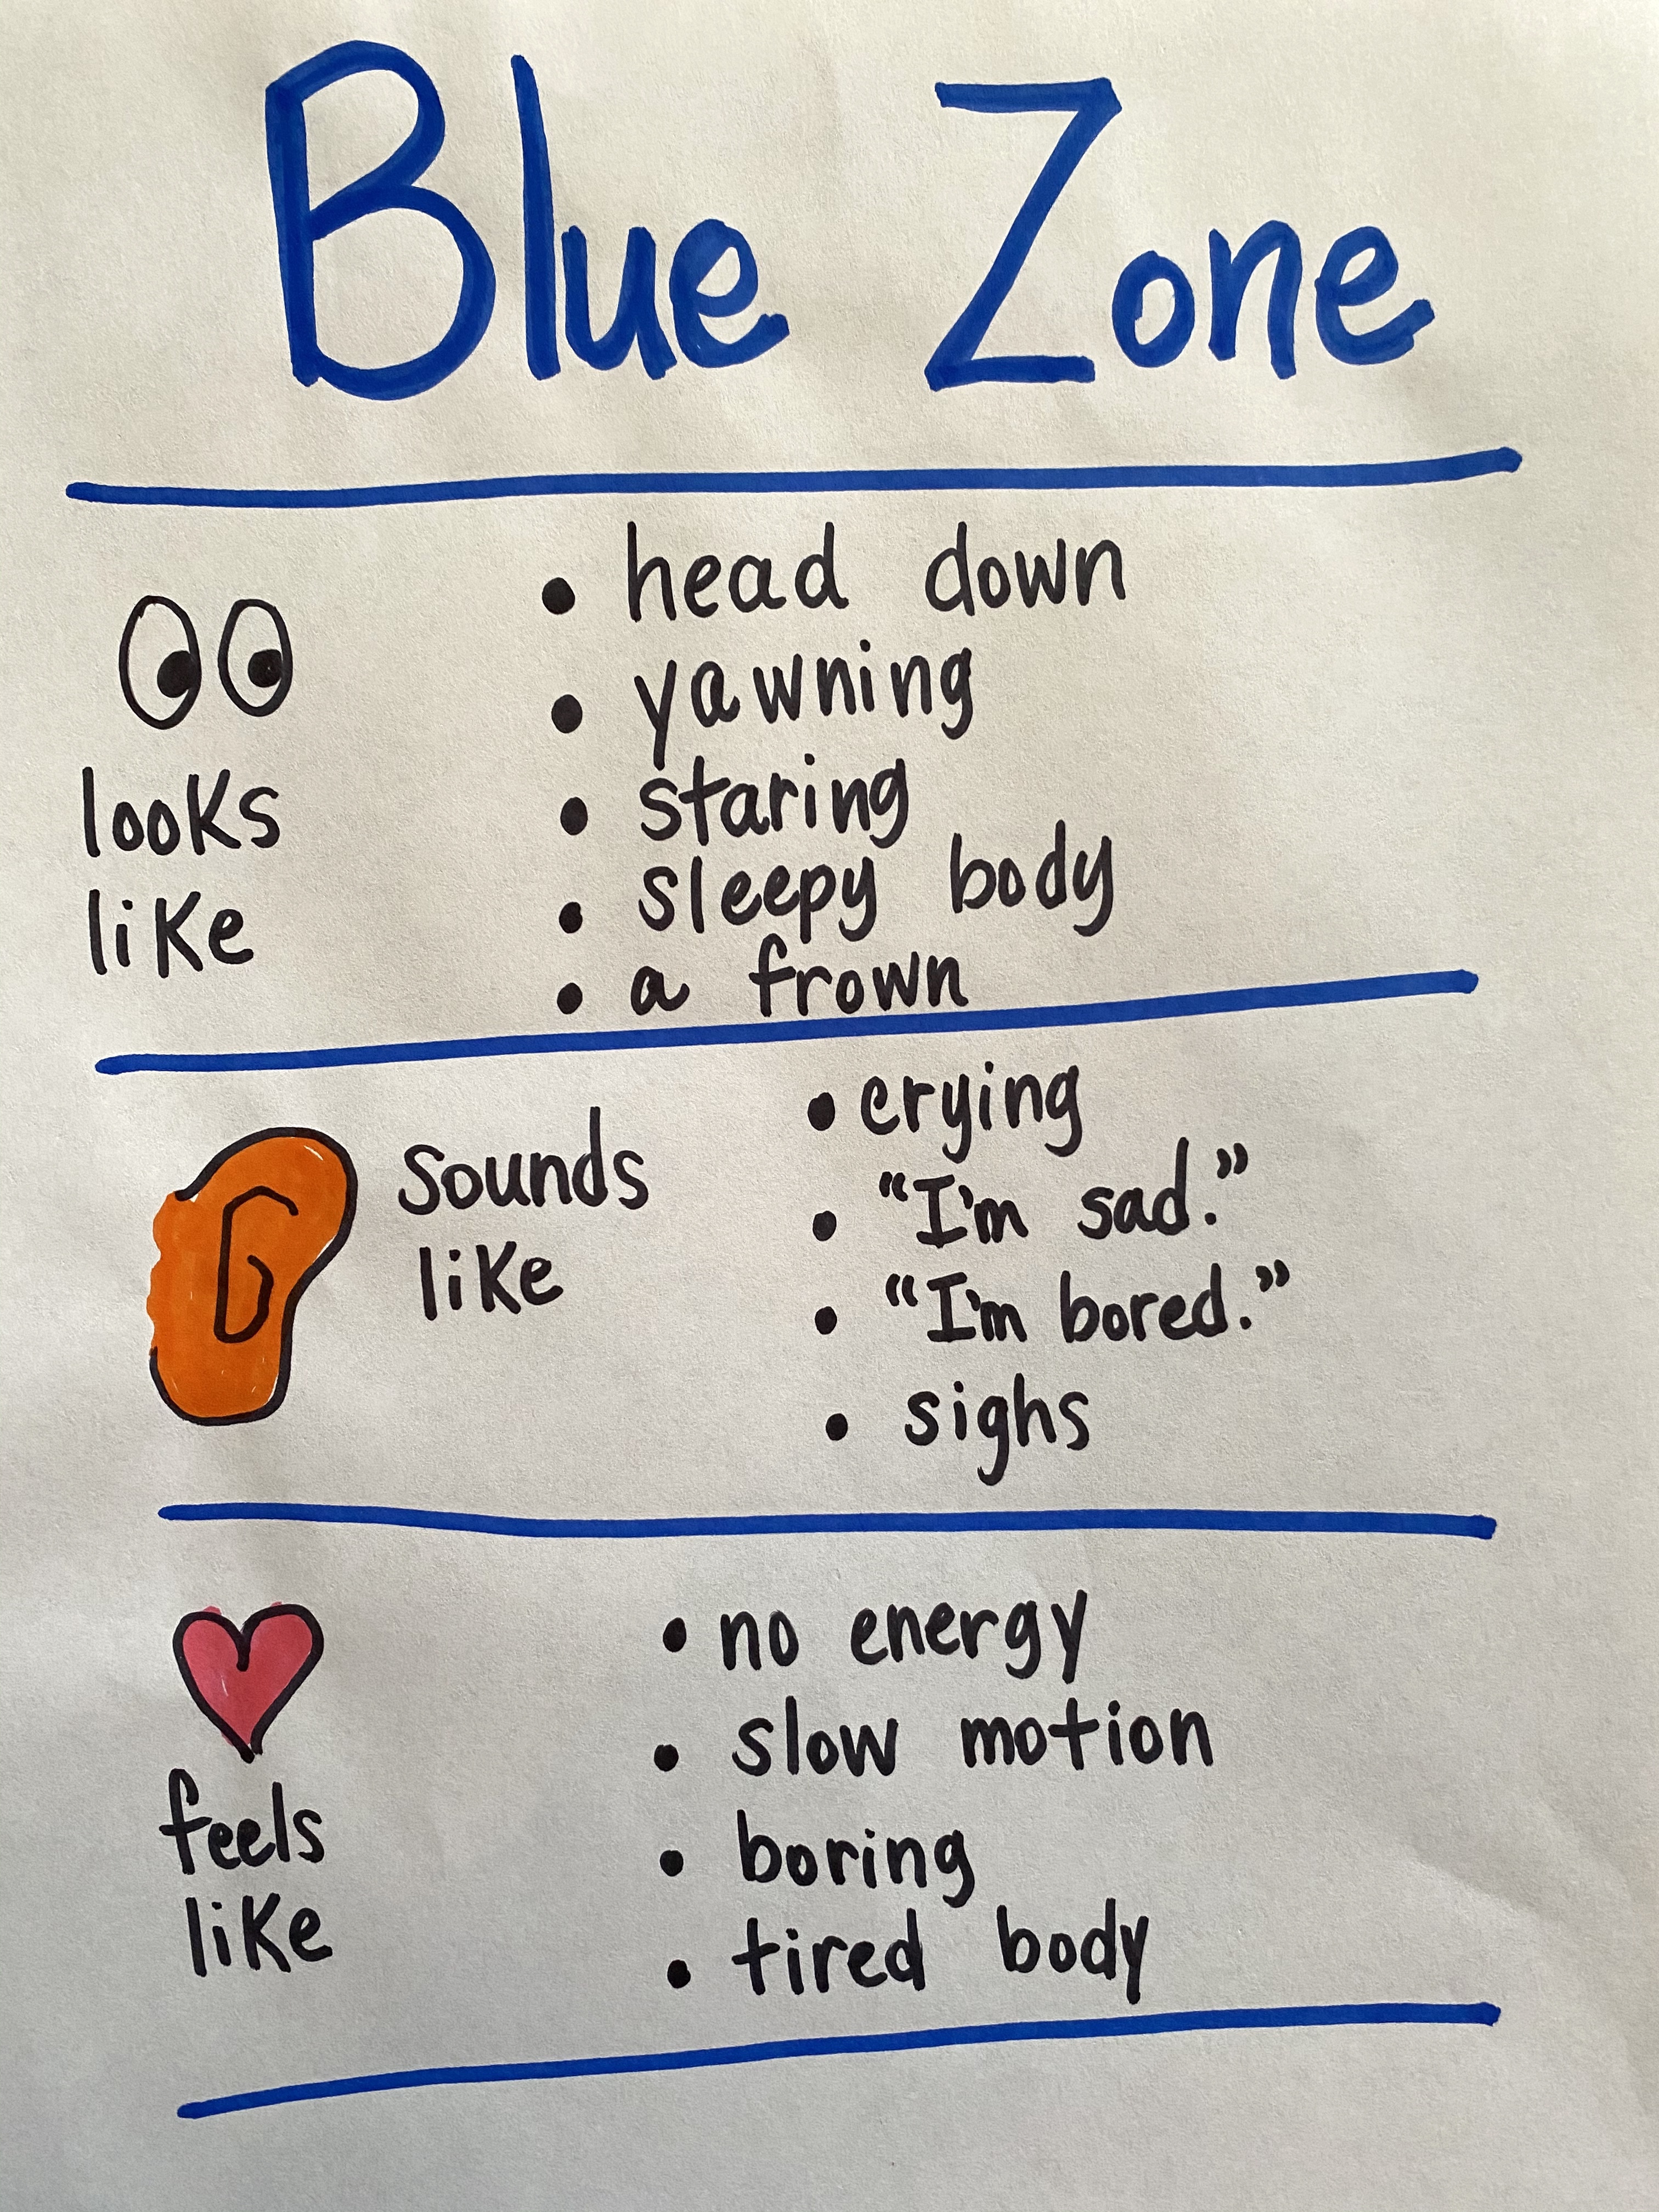 Blue Zone
looks
like
• head down
• yawning
• staring
• sleepy body
• a frown
Sounds
like
• crying
• "I'm sad."
• "I'm bored."
• sighs
feels
like
• no energy
• slow motion
• boring
• tired body